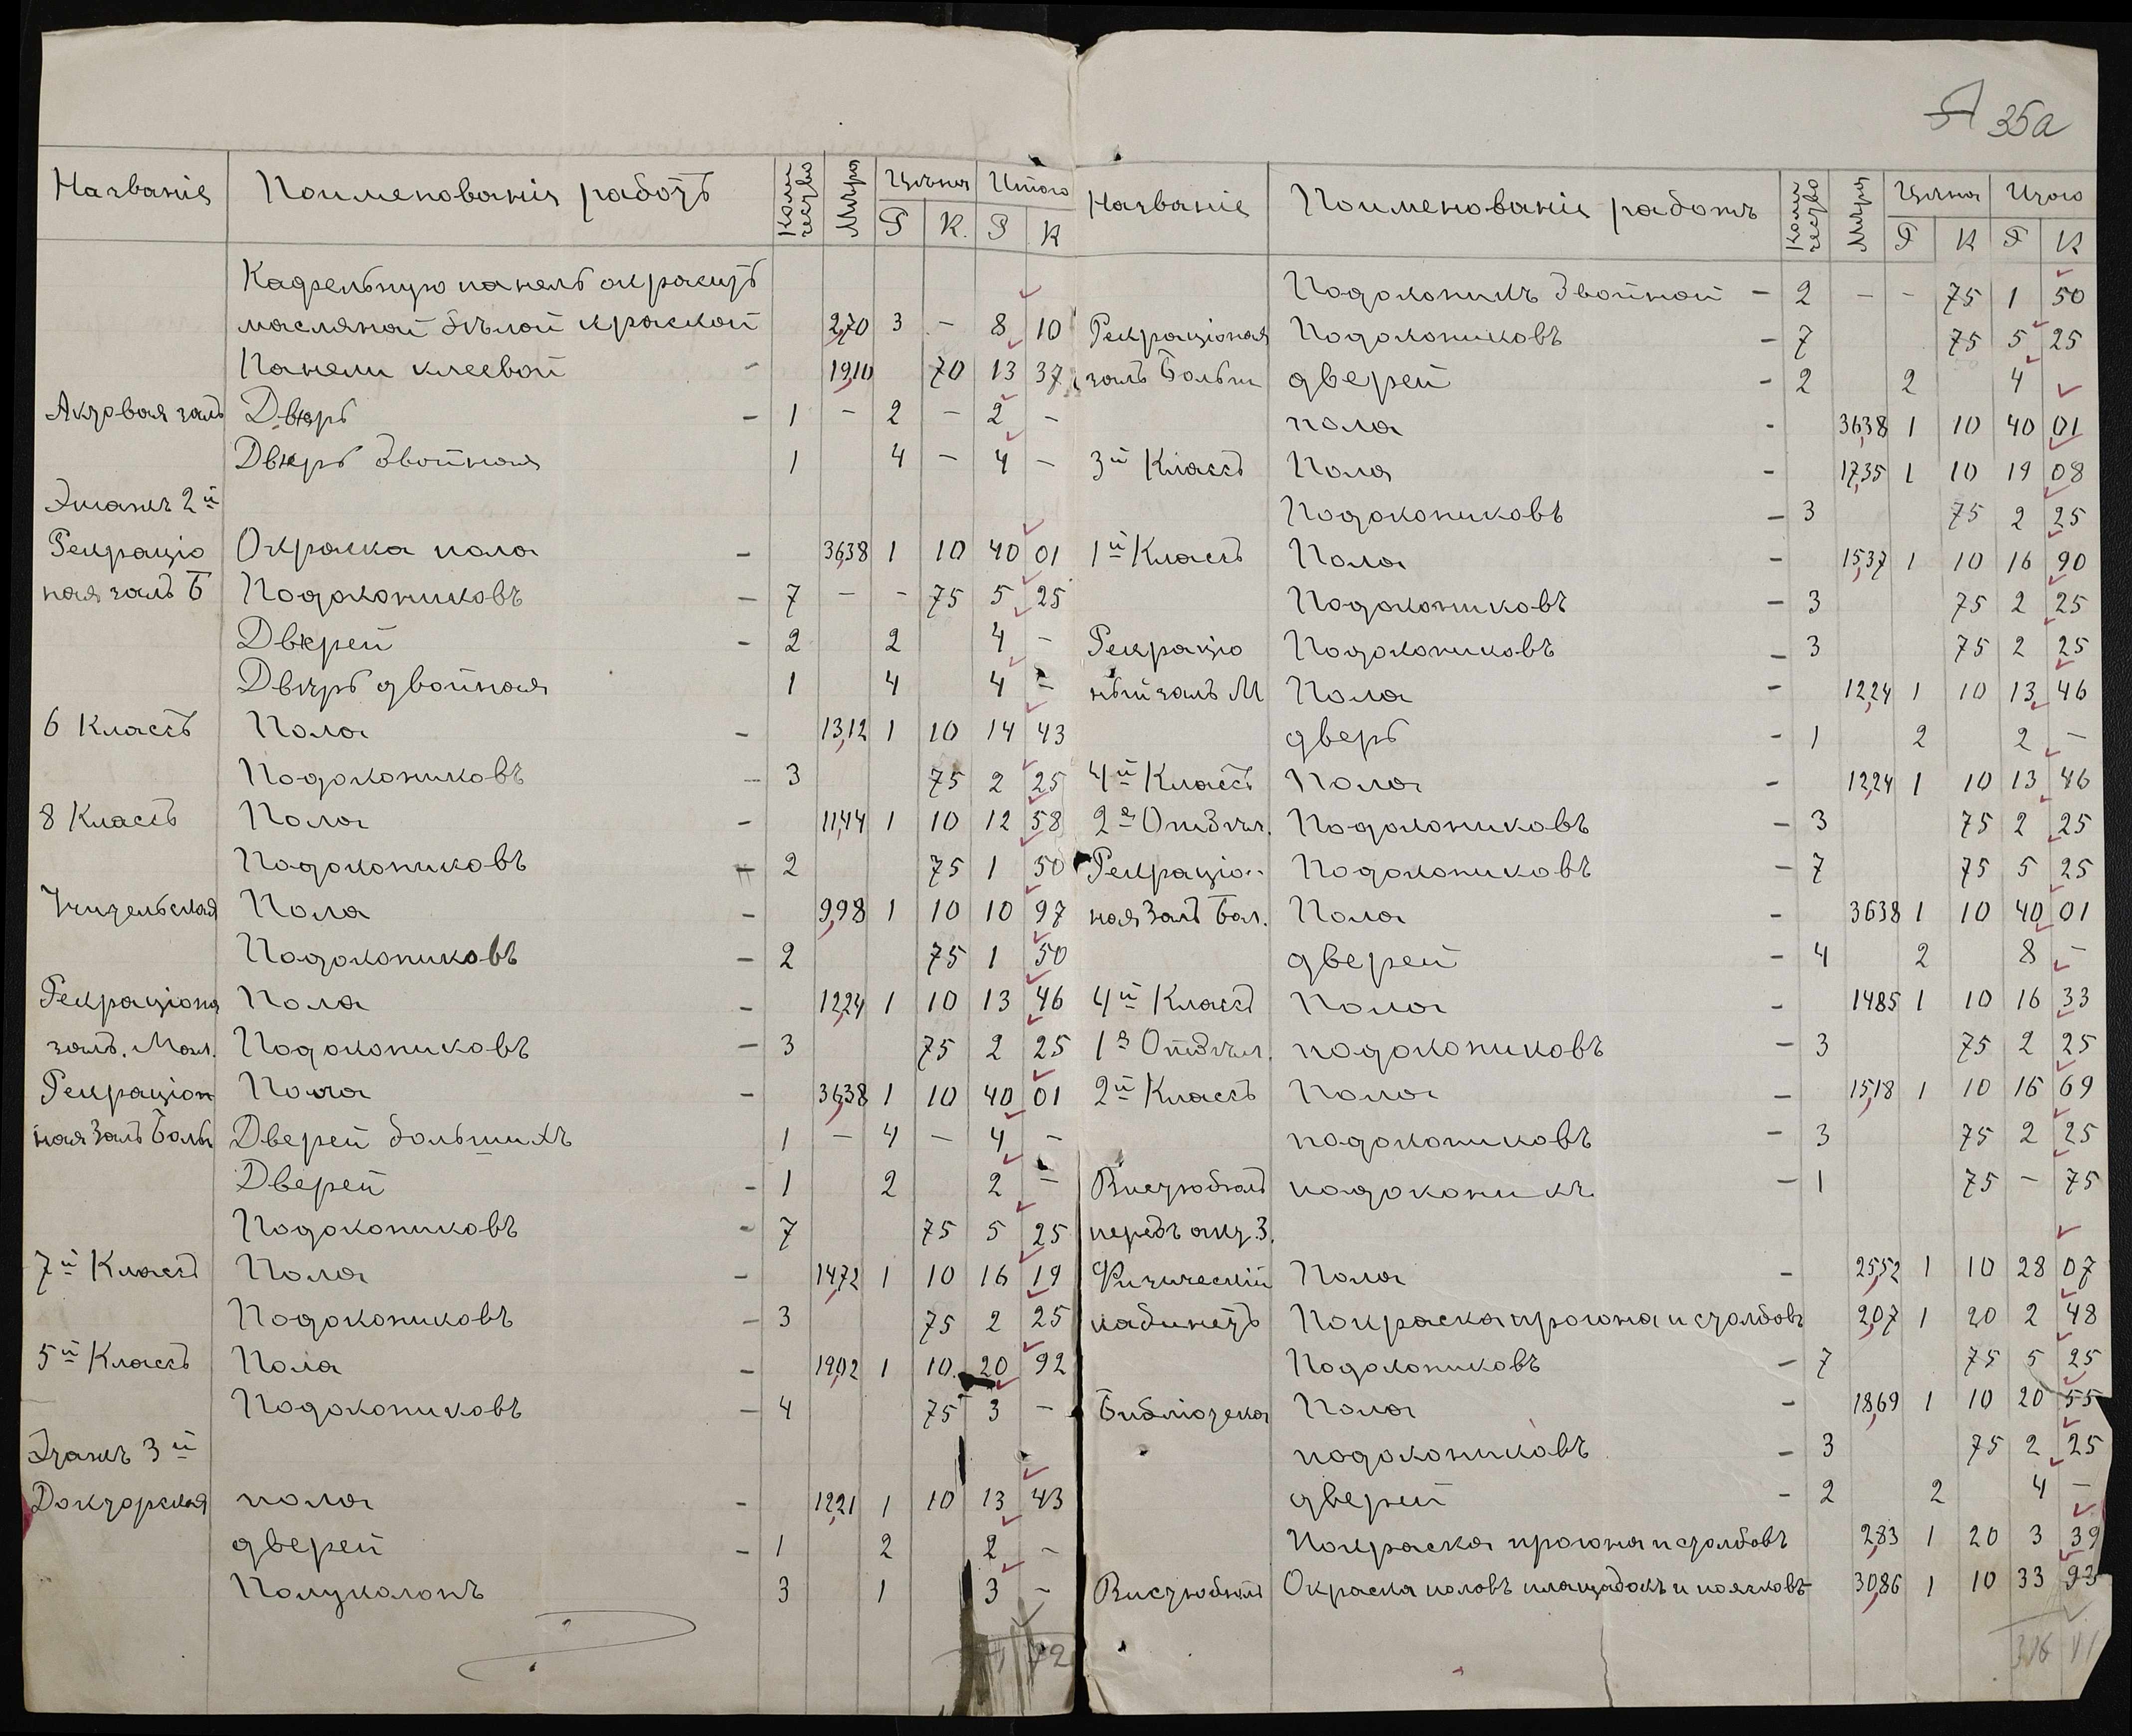 35а
Названіе Поименованія работъ Коли чество Мѣра Цѣна Итого
Р К. Р К
Кафельную панель окрасить
масляной бѣлой краской 2,70 3 – 8 10
Панели клеевой – 19,10 70 13 37
Актовая залъ Дверь – 1 – 2 – 2 –
Дверь двойная 1 4 – 4 –
Этажъ 2й
Рекраціо Окраска пола – 36,38 1 10 40 01
ная залъ Б Подокониковъ – 7 – – 75 5 25
Дверей – 2 2 4 –
Дверь двойная 1 4 4 –
6 Классъ Пола – 13,12 1 10 14 43
Подокониковъ – 3 75 2 25
8 Классъ Пола – 11,44 1 10 12 58
Подокониковъ – 2 75 1 50
Учительская Пола – 9,98 1 10 10 97
Подокониковъ – 2 75 1 50
Рекраціона Пола – 12,24 1 10 13 46
залъ. Мал. Подокониковъ – 3 75 2 25
Рекраціон Пола – 36,38 1 10 40 01
ная Залъ Больш Дверей большихъ 1 – 4 – 4 –
Дверей – 1 2 2 –
Подокониковъ – 7 75 5 25
7й Классъ Пола – 14,72 1 10 16 19
Подокониковъ – 3 75 2 25
5й Классъ Пола – 19,02 1 10 20 92
Подокониковъ – 4 75 3 –
Этажъ 3й
Докторская пола – 12,21 1 10 13 43
дверей – 1 2 2 –
Полуколонъ 3 1 3 –
72
Названіе Поименованіе работъ Коли чество Мѣра Цѣна Итого
Р К Р К
Подоконикъ Двойной – 2 – – 75 1 50
Рекраціоная Подокониковъ – 7 75 5 25
залъ Больш дверей – 2 2 4
пола – 36,38 1 10 40 01
3й Классъ Пола – 17,35 1 10 19 08
Подокониковъ – 3 75 2 25
1й Классъ Пола – 15,37 1 10 16 90
Подокониковъ – 3 75 2 25
Рекраціо Подокониковъ – 3 75 2 25
ный залъ М Пола – 12,24 1 10 13 46
дверь – 1 2 2 –
4й Классъ Пола – 12,24 1 10 13 46
2е Отдѣл. Подокониковъ – 3 75 2 25
Рекраціо- Подокониковъ – 7 75 5 25
ная Залъ Бол. Пола – 3638 1 10 40 01
дверей – 4 2 8 –
4й Классъ Пола – 1485 1 10 16 33
1е Отдѣл. подокониковъ – 3 75 2 25
2й Классъ Пола – 15,18 1 10 16 69
подокониковъ – 3 75 2 25
Вистюбюль подоконикъ – 1 75 – 75
передъ акт. З.
Физическій Пола – 25,52 1 10 28 07
кабинетъ Покраска прогона и столбовъ 2,07 1 20 2 48
Подокониковъ – 7 75 5 25
Библіотека Пола – 18,69 1 10 20 55
подокониковъ – 3 75 2 25
дверей – 2 2 4 –
Покраска прогона и столбовъ 2,83 1 20 3 39
Вистюбюль Окраска половъ площадокъ и поясковъ 30,86 1 10 33 93
316 11